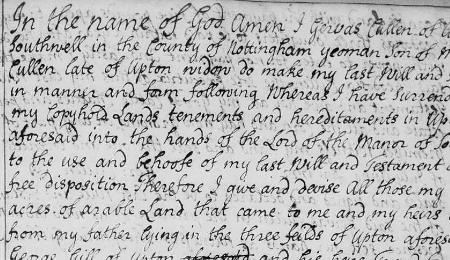 In the name of God Amen I Gervas Cullen of
Southwell in the County of Nottingham yeoman Son of
Cullen late of Upton widow do make my last Will and
in manner and form following Whereas I have Surren
my Copyhold Lands tenements and hereditaments in Up
aforesaid into the hands of the Lord of the Manor of So
to the use and behoofe of my last Will and Testament
free disposition Therefore I give and devise All those my
acres of arable Land that came to me and my heirs
from my father lying in the three feilds of Upton afores
George Gill of Upton aforesaid and his heirs